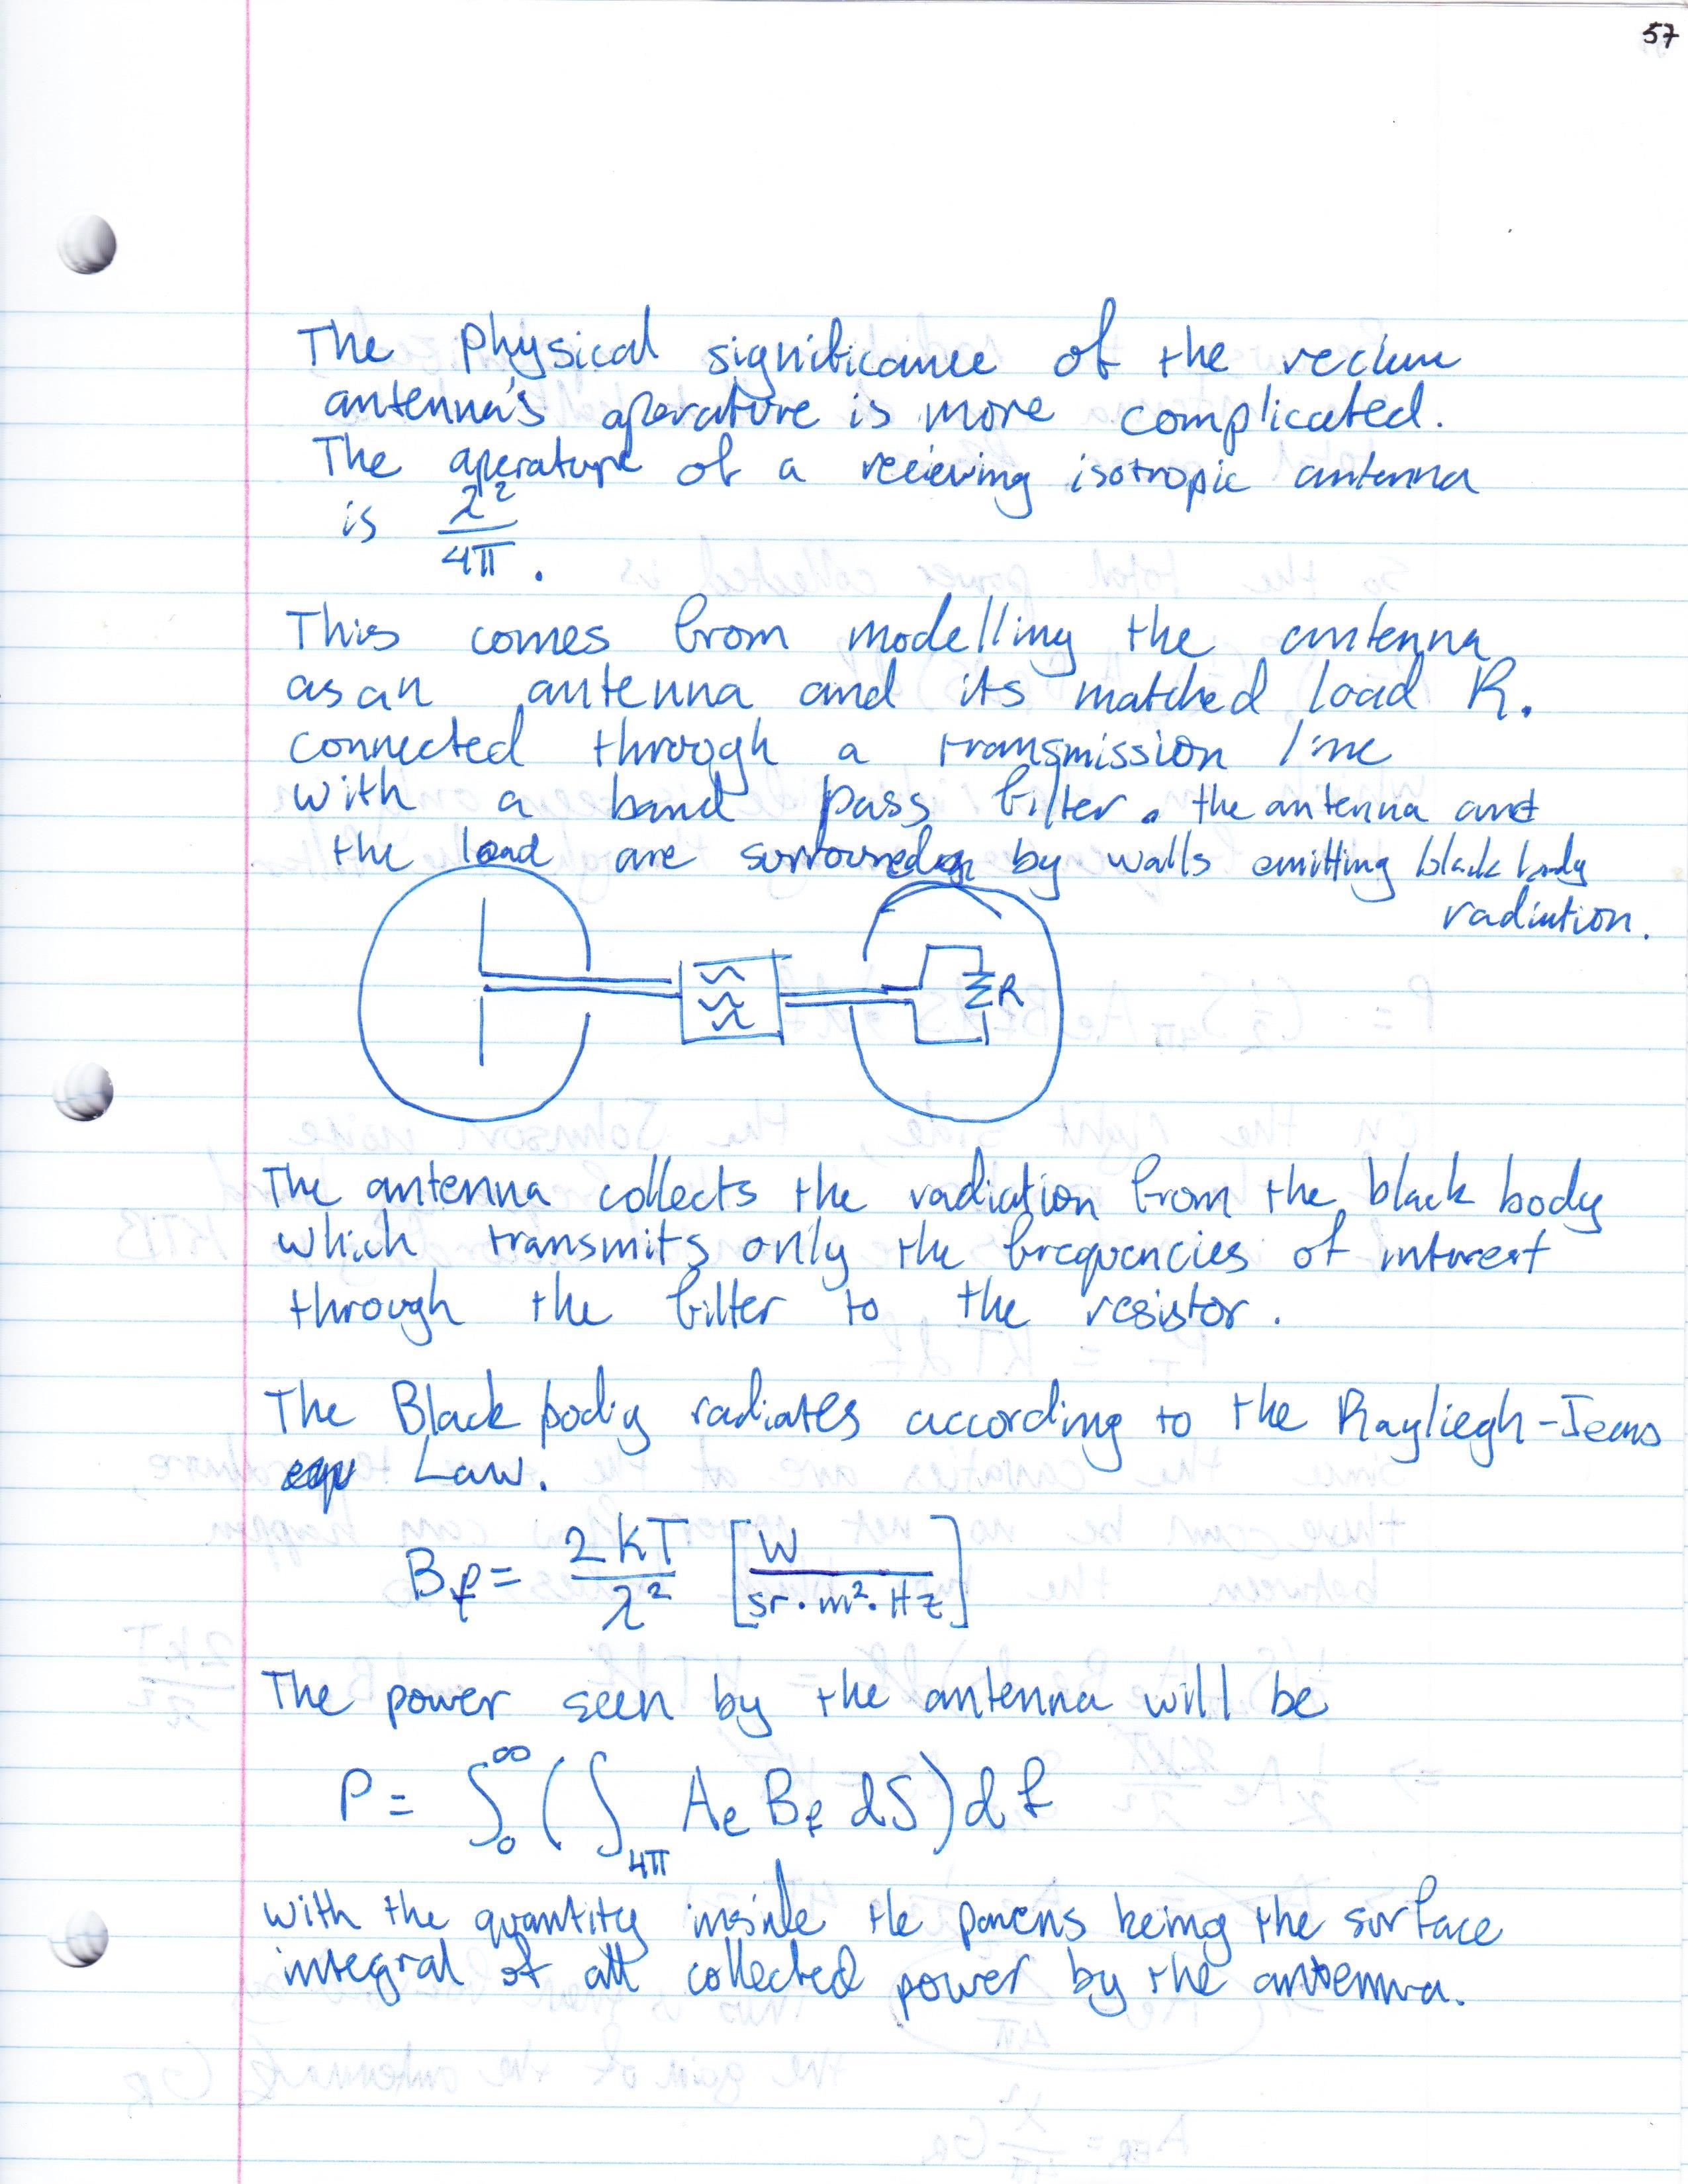 57
The physical significance of the recieve
antenna's aperature is more complicated.
The aperature of a recieving isotropic antenna
is λ²/4π.
This comes from modelling the antenna
as an antenna and its matched load R.
connected through a transmission line
with a band pass filter. the antenna and
the load are surrounded by walls emitting black body
radiation.
R
The antenna collects the radiation from the black body
which transmits only the frequencies of interest
through the filter to the resistor.
The Black body radiates according to the Rayliegh-Jeans
Law.
B_f = 2kT/λ² [W/sr·m²·Hz]
The power seen by the antenna will be
P = ∫₀^∞ (∫_4π Ae B_f dS) df
with the quantity inside the parens being the surface
integral of all collected power by the antenna.